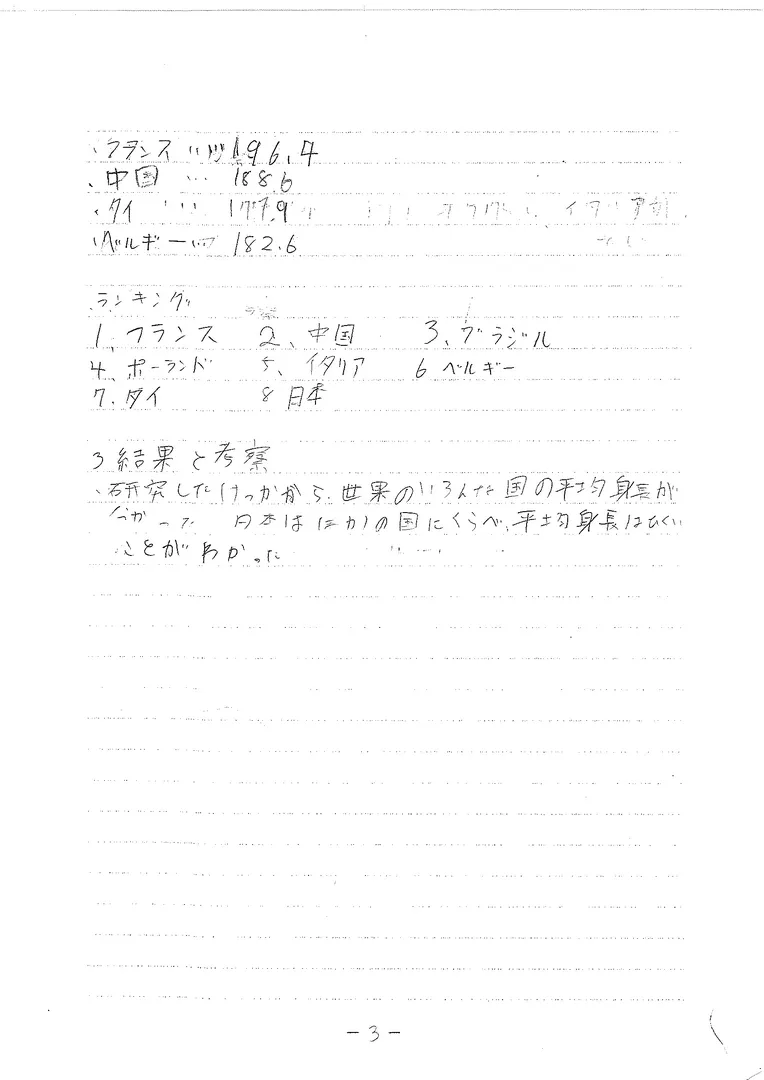 ・フランス … 196.4
・中国 … 188.6
・タイ … 177.9
・ベルギー … 182.6
ランキング
1、フランス 2、中国 3、ブラジル
4、ポーランド 5、イタリア 6 ベルギー
7、タイ 8 日本
3 結果と考察
・研究したけっかから、世界のいろんな国の平均身長が
分かって 日本はほかの国にくらべ、平均身長はひくい
ことがわかった
- 3 -